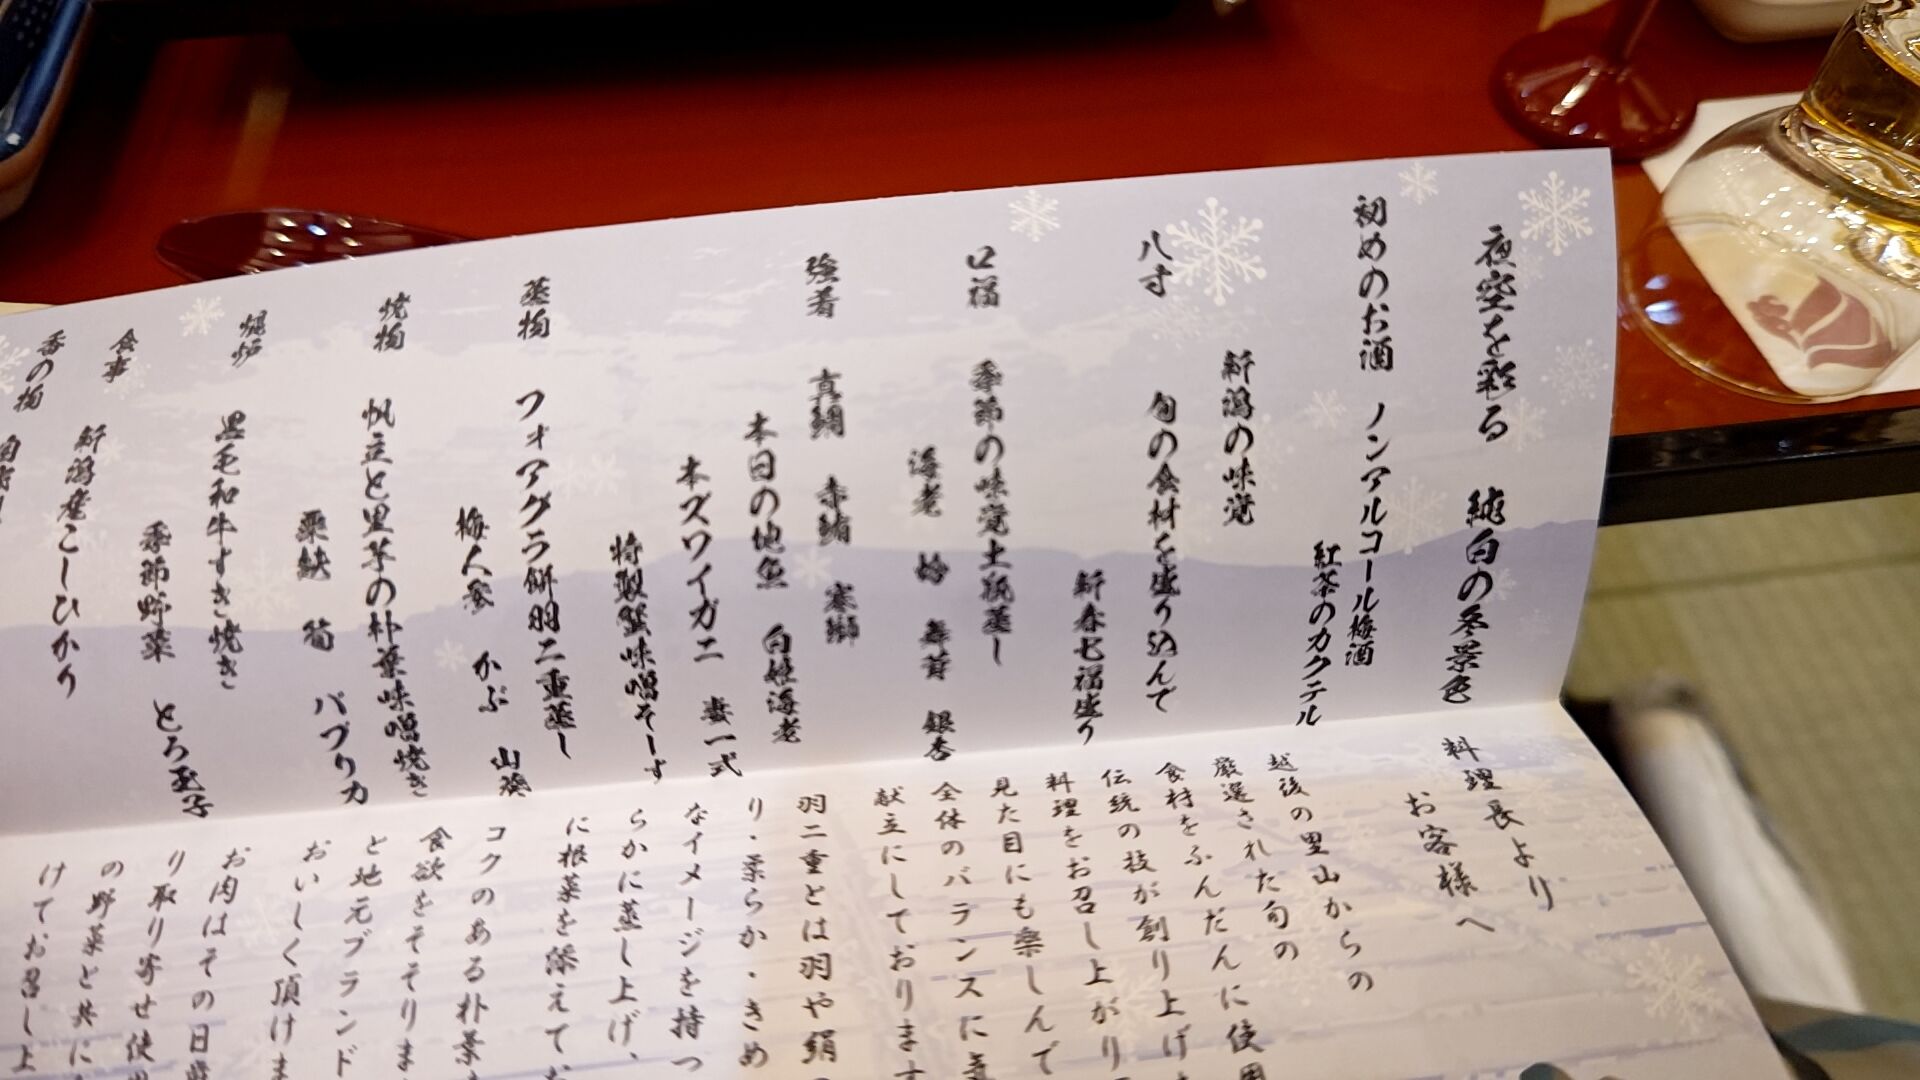 夜空を彩る 純白の冬景色
初めのお酒 ノンアルコール梅酒
紅茶のカクテル
新潟の味覚
八寸 旬の食材を盛り込んで
新春七福盛り
口福 季節の味覚土瓶蒸し
海老 蛤 舞茸 銀杏
強肴 真鯛 赤鮪 寒鰤
本日の地魚 白姫海老
本ズワイガニ 妻一式
特製蟹味噌そーす
蒸物 フォアグラ餅羽二重蒸し
梅人参 かぶ 山葵
焼物 帆立と里芋の朴葉味噌焼き
栗麩 筍 パプリカ
焜炉 黒毛和牛すき焼き
季節野菜 とろ玉子
食事 新潟産こしひかり
香の物
料理長より
お客様へ
越後の里山からの
厳選された旬の
食材をふんだんに使用
伝統の技が創り上げ
料理をお召し上がり
見た目にも楽しんで
全体のバランスに
献立にしております
羽二重とは羽や絹
り・柔らか・きめ
なイメージを持つ
らかに蒸し上げ、
に根菜を添えてお
コクのある朴葉
食欲をそそりま
と地元ブランド
おいしく頂けま
お肉はその日
り取り寄せ使
の野菜と共に
けてお召し上